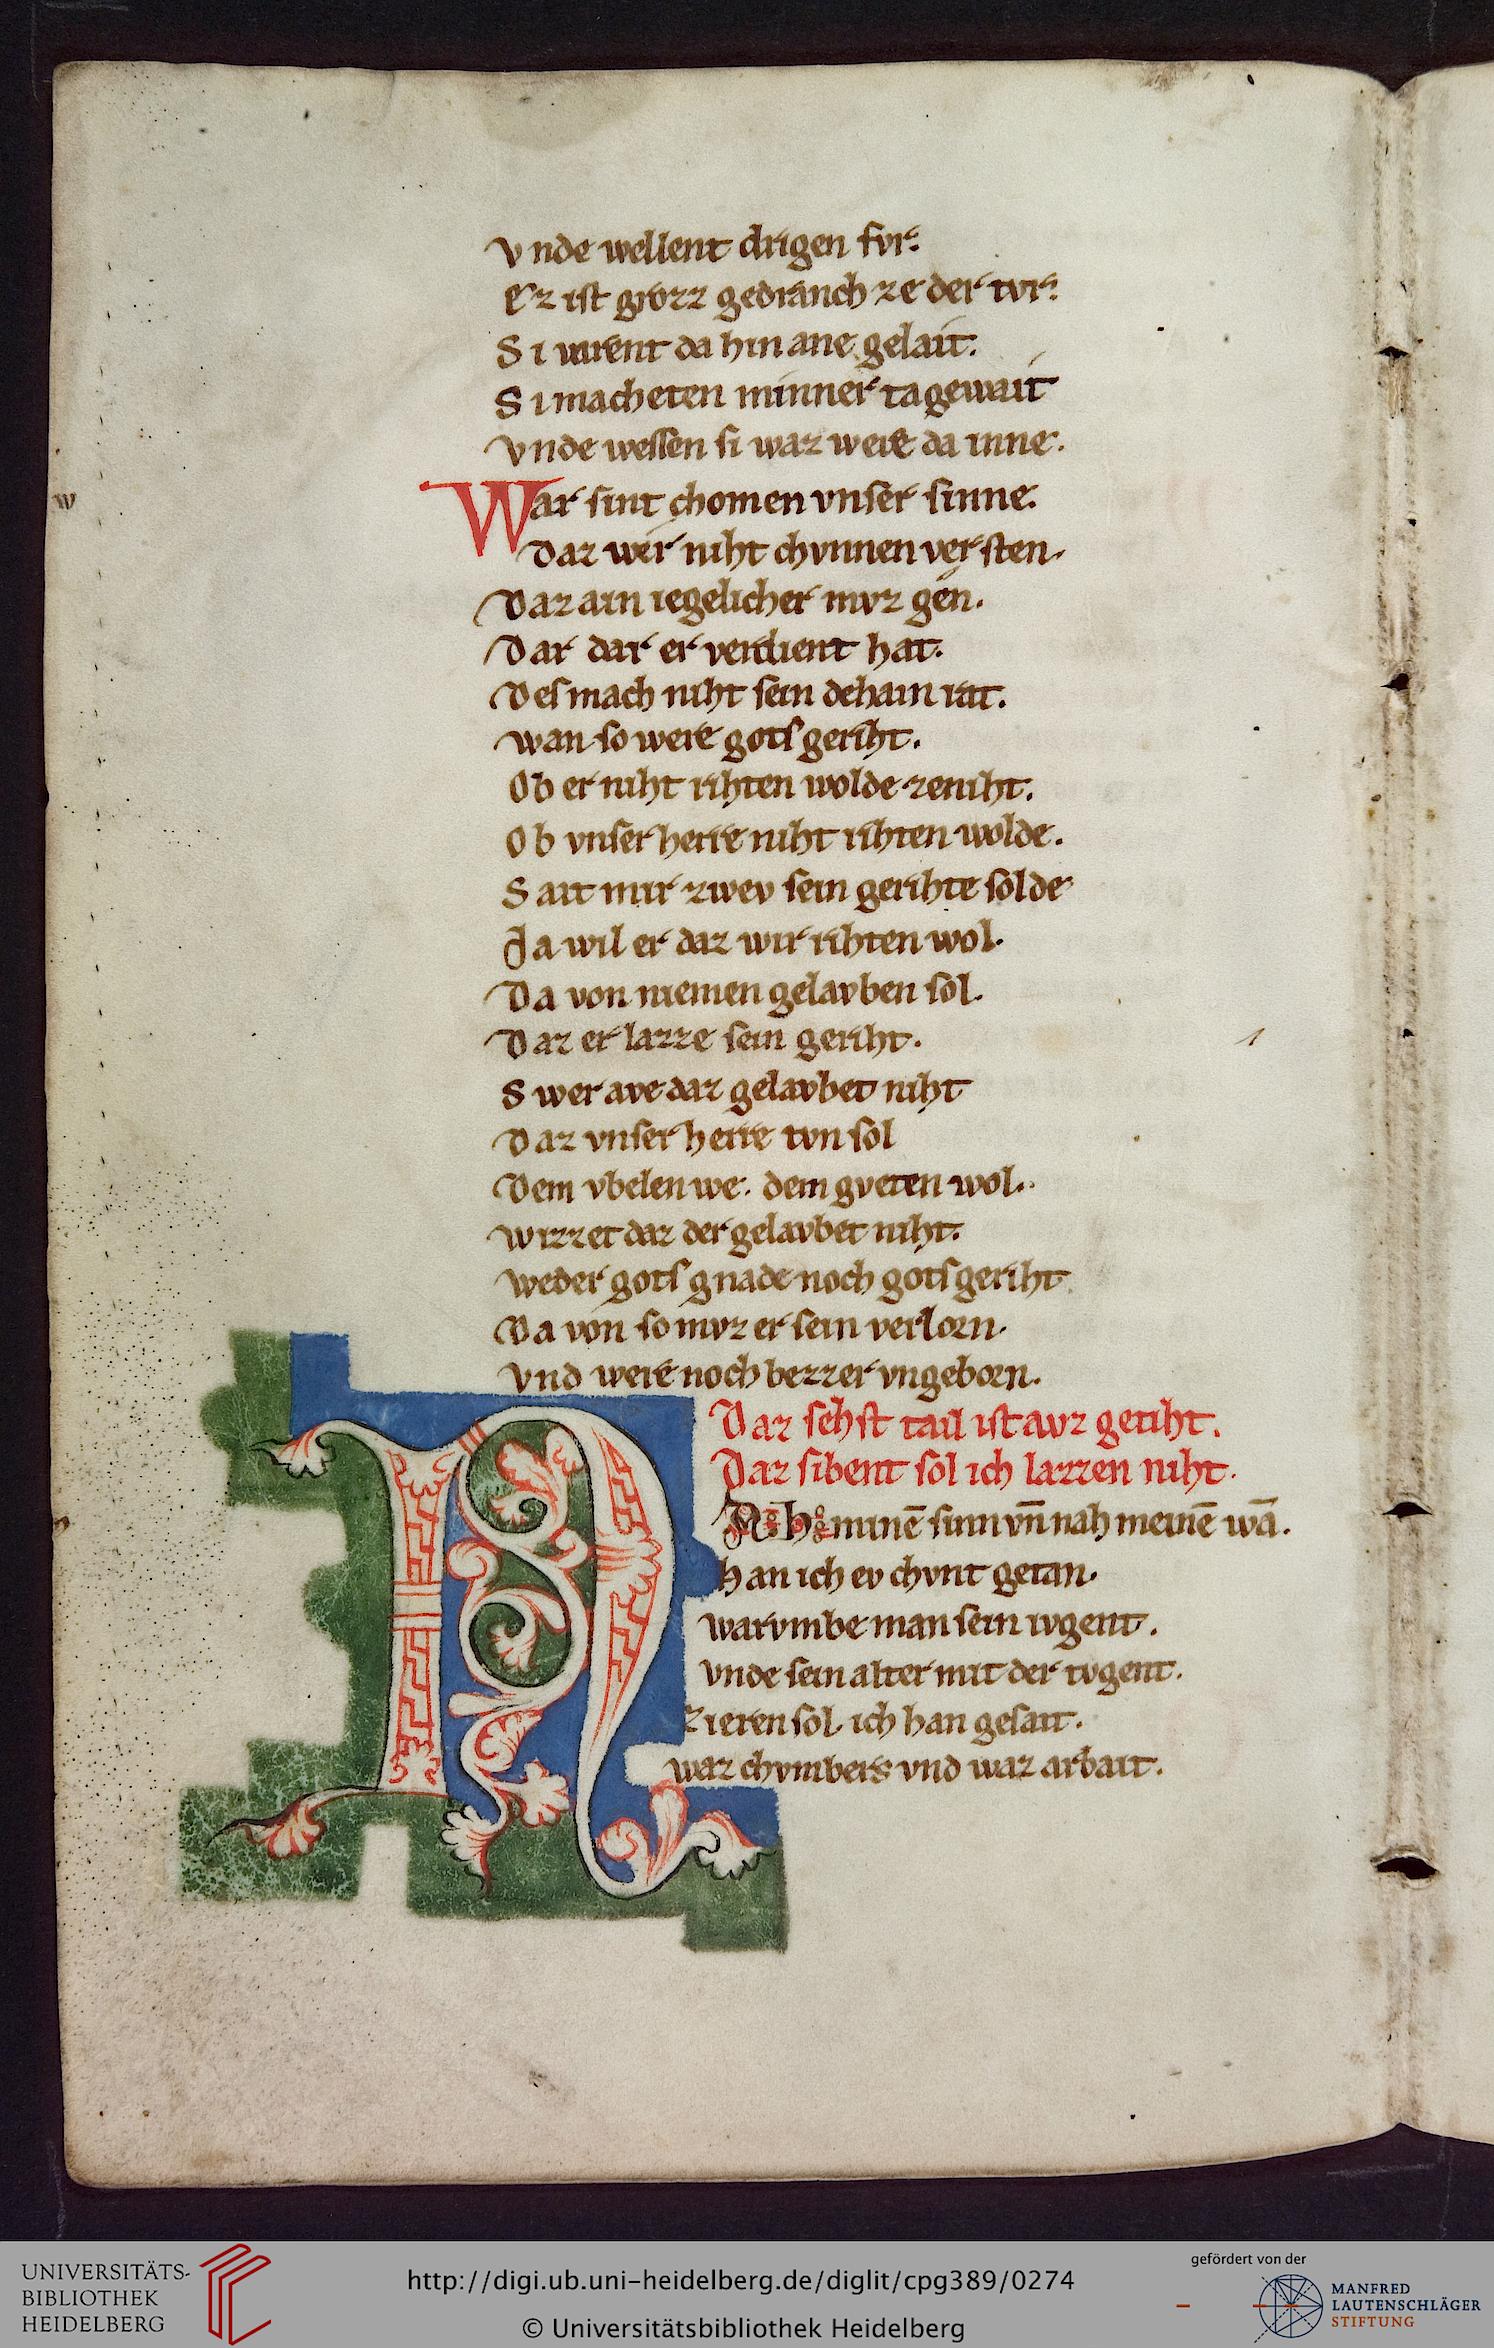 vnde wellent dringen fvr.
Ez ist grozz gedranch ze der tvr.
Si wrent da hin ane gelait.
Si macheten minner tagewait
vnde wessen si waz were da inne.
War sint chomen vnser sinne.
Daz wir niht chvnnen versten.
Daz ain iegelicher mvz gen.
Dar dar er verdient hat.
Des mach niht sein dehain rat.
wan so were gots geriht.
Ob er niht rihten wolde zeniht.
Ob vnser herre niht rihten wolde.
Sait mir zwev sein gerihte solde
Ja wil er daz wir rihten wol.
Da von niemen gelavben sol.
Daz er lazze sein geriht.
Swer ave daz gelavbet niht
Daz vnser herre tvn sol
Dem vbelen we. dem gveten wol.
wizzet daz der gelavbet niht.
weder gots gnade noch gots geriht
Da von so mvz er sein verlorn.
vnd were noch bezzer vngeborn.
Daz sehst tail ist avz getiht.
Daz sibent sol ich lazzen niht.
Nah minē sinn vn̄ nah meinē wā.
han ich ev chvnt getan.
warvmbe man sein ivgent.
vnde sein alter mit der tvgent.
zieren sol. ich han gesait.
waz chvmbers vnd waz arbait.
w
UNIVERSITÄTS-
BIBLIOTHEK
HEIDELBERG
http://digi.ub.uni-heidelberg.de/diglit/cpg389/0274
© Universitätsbibliothek Heidelberg
gefördert von der
MANFRED
LAUTENSCHLÄGER
STIFTUNG